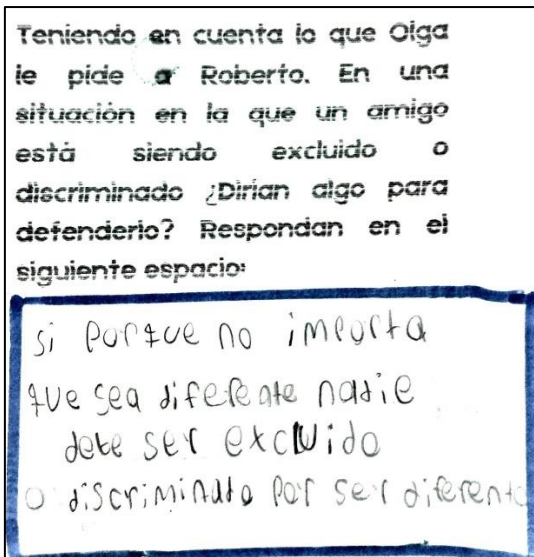 Teniendo en cuenta lo que Olga
le pide a Roberto. En una
situación en la que un amigo
está siendo excluido o
discriminado ¿Dirían algo para
defenderlo? Respondan en el
siguiente espacio:
si porque no importa
que sea diferente nadie
debe ser excluido
o discriminado por ser diferente